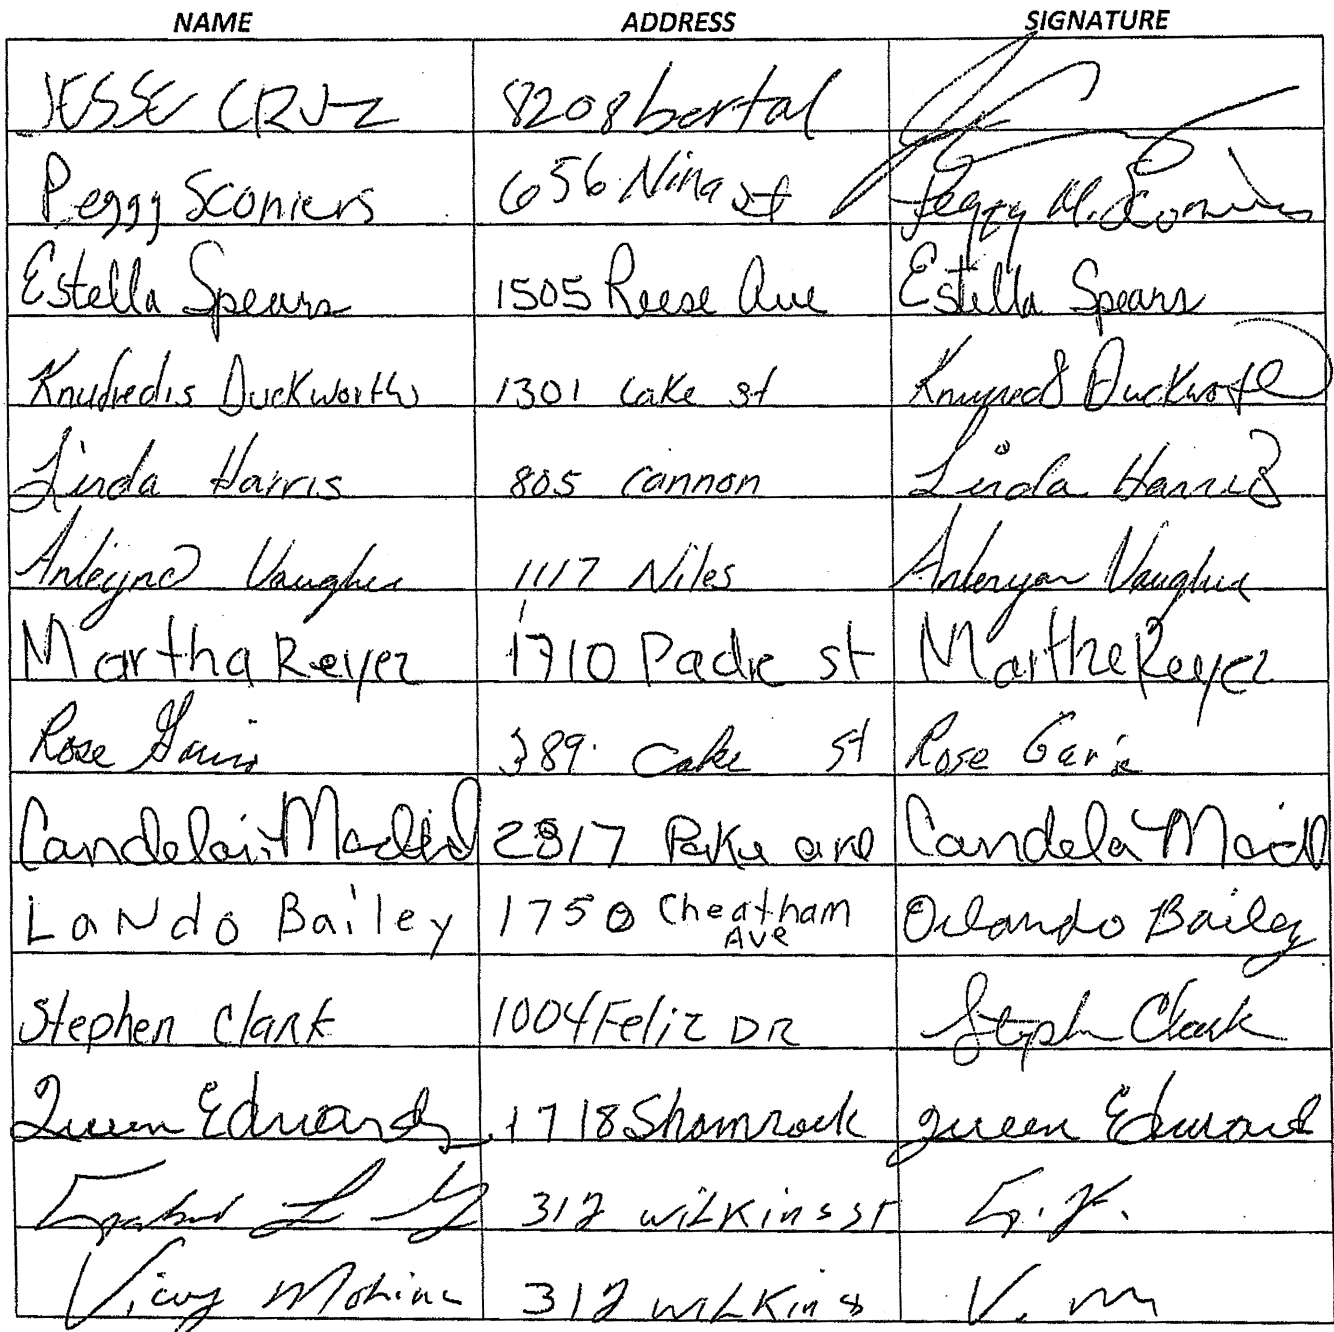 NAME ADDRESS SIGNATURE
JESSE CRUZ 8208 bertal
Peggy Sconiers 656 Nina st Peggy M. Sconiers
Estella Spears 1505 Reese Ave Estella Spears
Knufredis Duckworth 1301 Lake st Duckworth
Linda Harris 805 Cannon Linda Harris
Vaughn 1117 Niles Vaughn
Martha Reyez 1710 Padre st Martha Reyez
Rose 389 st Rose
2817 ave
LaNdo Bailey 1750 Cheatham
Ave Orlando Bailey
Stephen Clark 1004 Feliz DR Stephen Clark
Queen Edwards 1718 Shamrock queen Edward
312 wilkins st
Molina 312 wilkins V. m